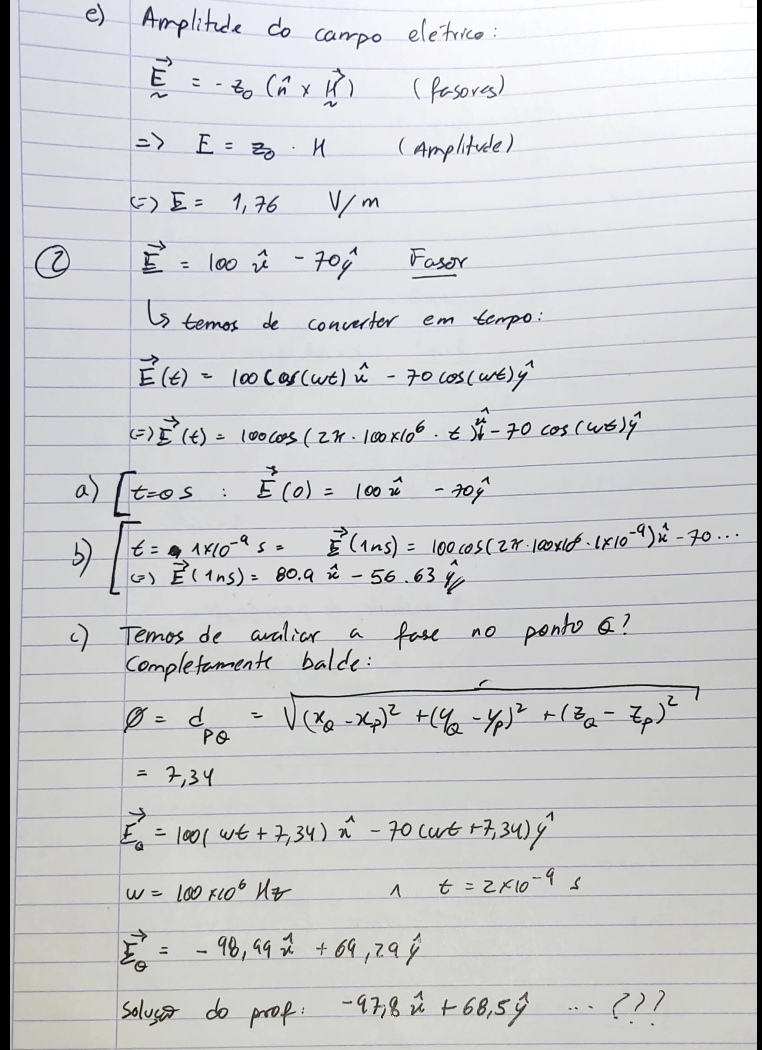 e) Amplitude do campo elétrico:
E⃗ = - z₀ (n̂ x H⃗) (fasores)
=> E = z₀ . H (Amplitude)
(=) E = 1,76 V/m
② E⃗ = 100 x̂ - 70ŷ Fasor
↳ temos de converter em tempo:
E⃗(t) = 100 cos(wt) x̂ - 70 cos(wt)ŷ
(=) E⃗(t) = 100cos(2π.100x10⁶. t)x̂ - 70 cos(wt)ŷ
a) [t=0 s : E⃗(0) = 100 x̂ - 70ŷ
b) [t = 1x10⁻⁹ s = E⃗(1ns) = 100cos(2π.100x10⁶.1x10⁻⁹)x̂ - 70...
(=) E⃗(1ns) = 80.9 x̂ - 56.63 ŷ//
c) Temos de avaliar a fase no ponto Q?
Completamente balde:
Ø = d_PQ = √((x_Q - x_P)² + (y_Q - y_P)² + (z_Q - z_P)²)
= 7,34
E⃗_Q = 100( wt + 7,34) x̂ - 70 (wt +7,34) ŷ
w = 100 x10⁶ Hz ∧ t = 2x10⁻⁹ s
E⃗_Q = - 98,99 x̂ + 69,29 ŷ
Solução do prof: -97,8 x̂ + 68,5 ŷ ... ???